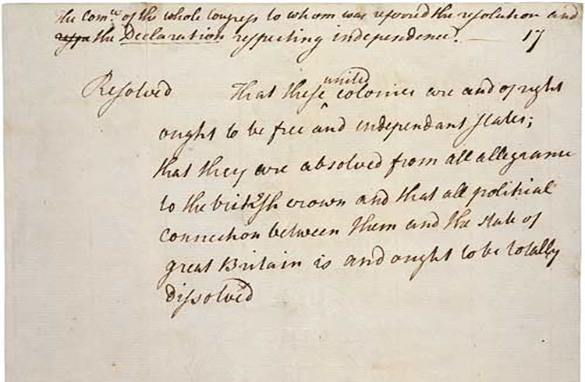 The Com.ee of the whole Congress to whom was referred the resolution and
the Declaration respecting independence.— 17
Resolved That these united colonies are and of right
ought to be free and independant states;
that they are absolved from all allegiance
to the british crown and that all political
connection between them and the state of
great Britain is and ought to be totally
dissolved